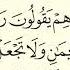 هِمْ يَقُولُونَ رَ
يمَٰنِ وَلَا تَجْعَل